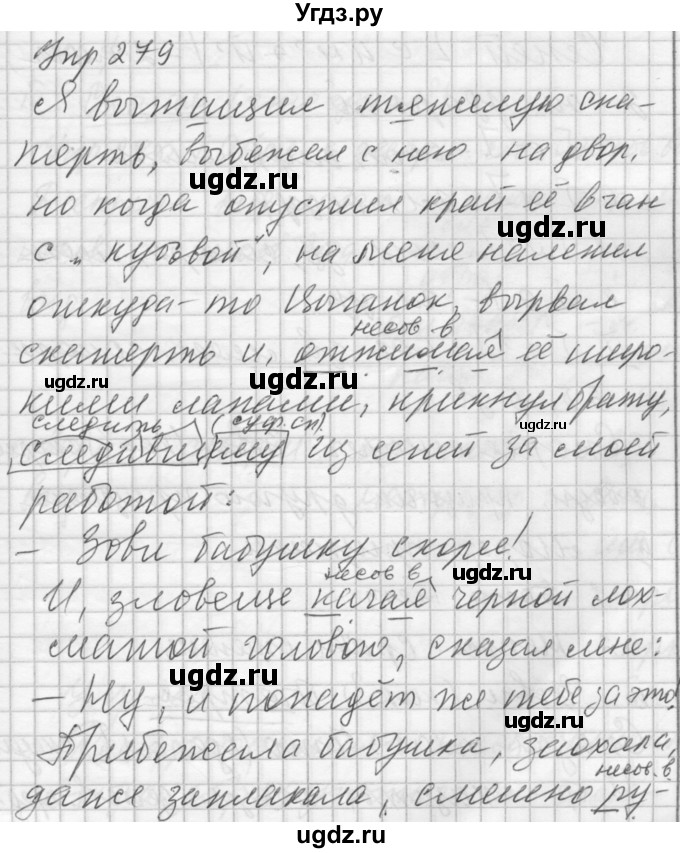 Угдз.ру
Упр 279
Я вытащил тяжелую ска-
терть, выбежал с нею на двор,
ugdz.ru ugdz.ru
но когда опустил край её в чан
с „кубовой", на меня налетел
ugdz.ru ugdz.ru
откуда-то Цыганок, вырвал
несов в
скатерть и, отжимая её широ-
ugdz.ru ugdz.ru
кими лапами, крикнул брату,
следить суф. сл.
следившему из сеней за моей
ugdz.ru
работой:
- Зови бабушку скорее!
несов в. ugdz.ru
И, зловеще качая черной лох-
матой головою, сказал мне:
ugdz.ru
- Ну, и попадёт же тебе за это!
ugdz.ru
Прибежала бабушка, заохала,
несов. в.
даже заплакала, смешно ру-
ugdz.ru